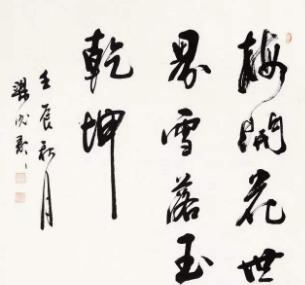 梅開花世
界雪落玉
乾坤
壬辰秋月